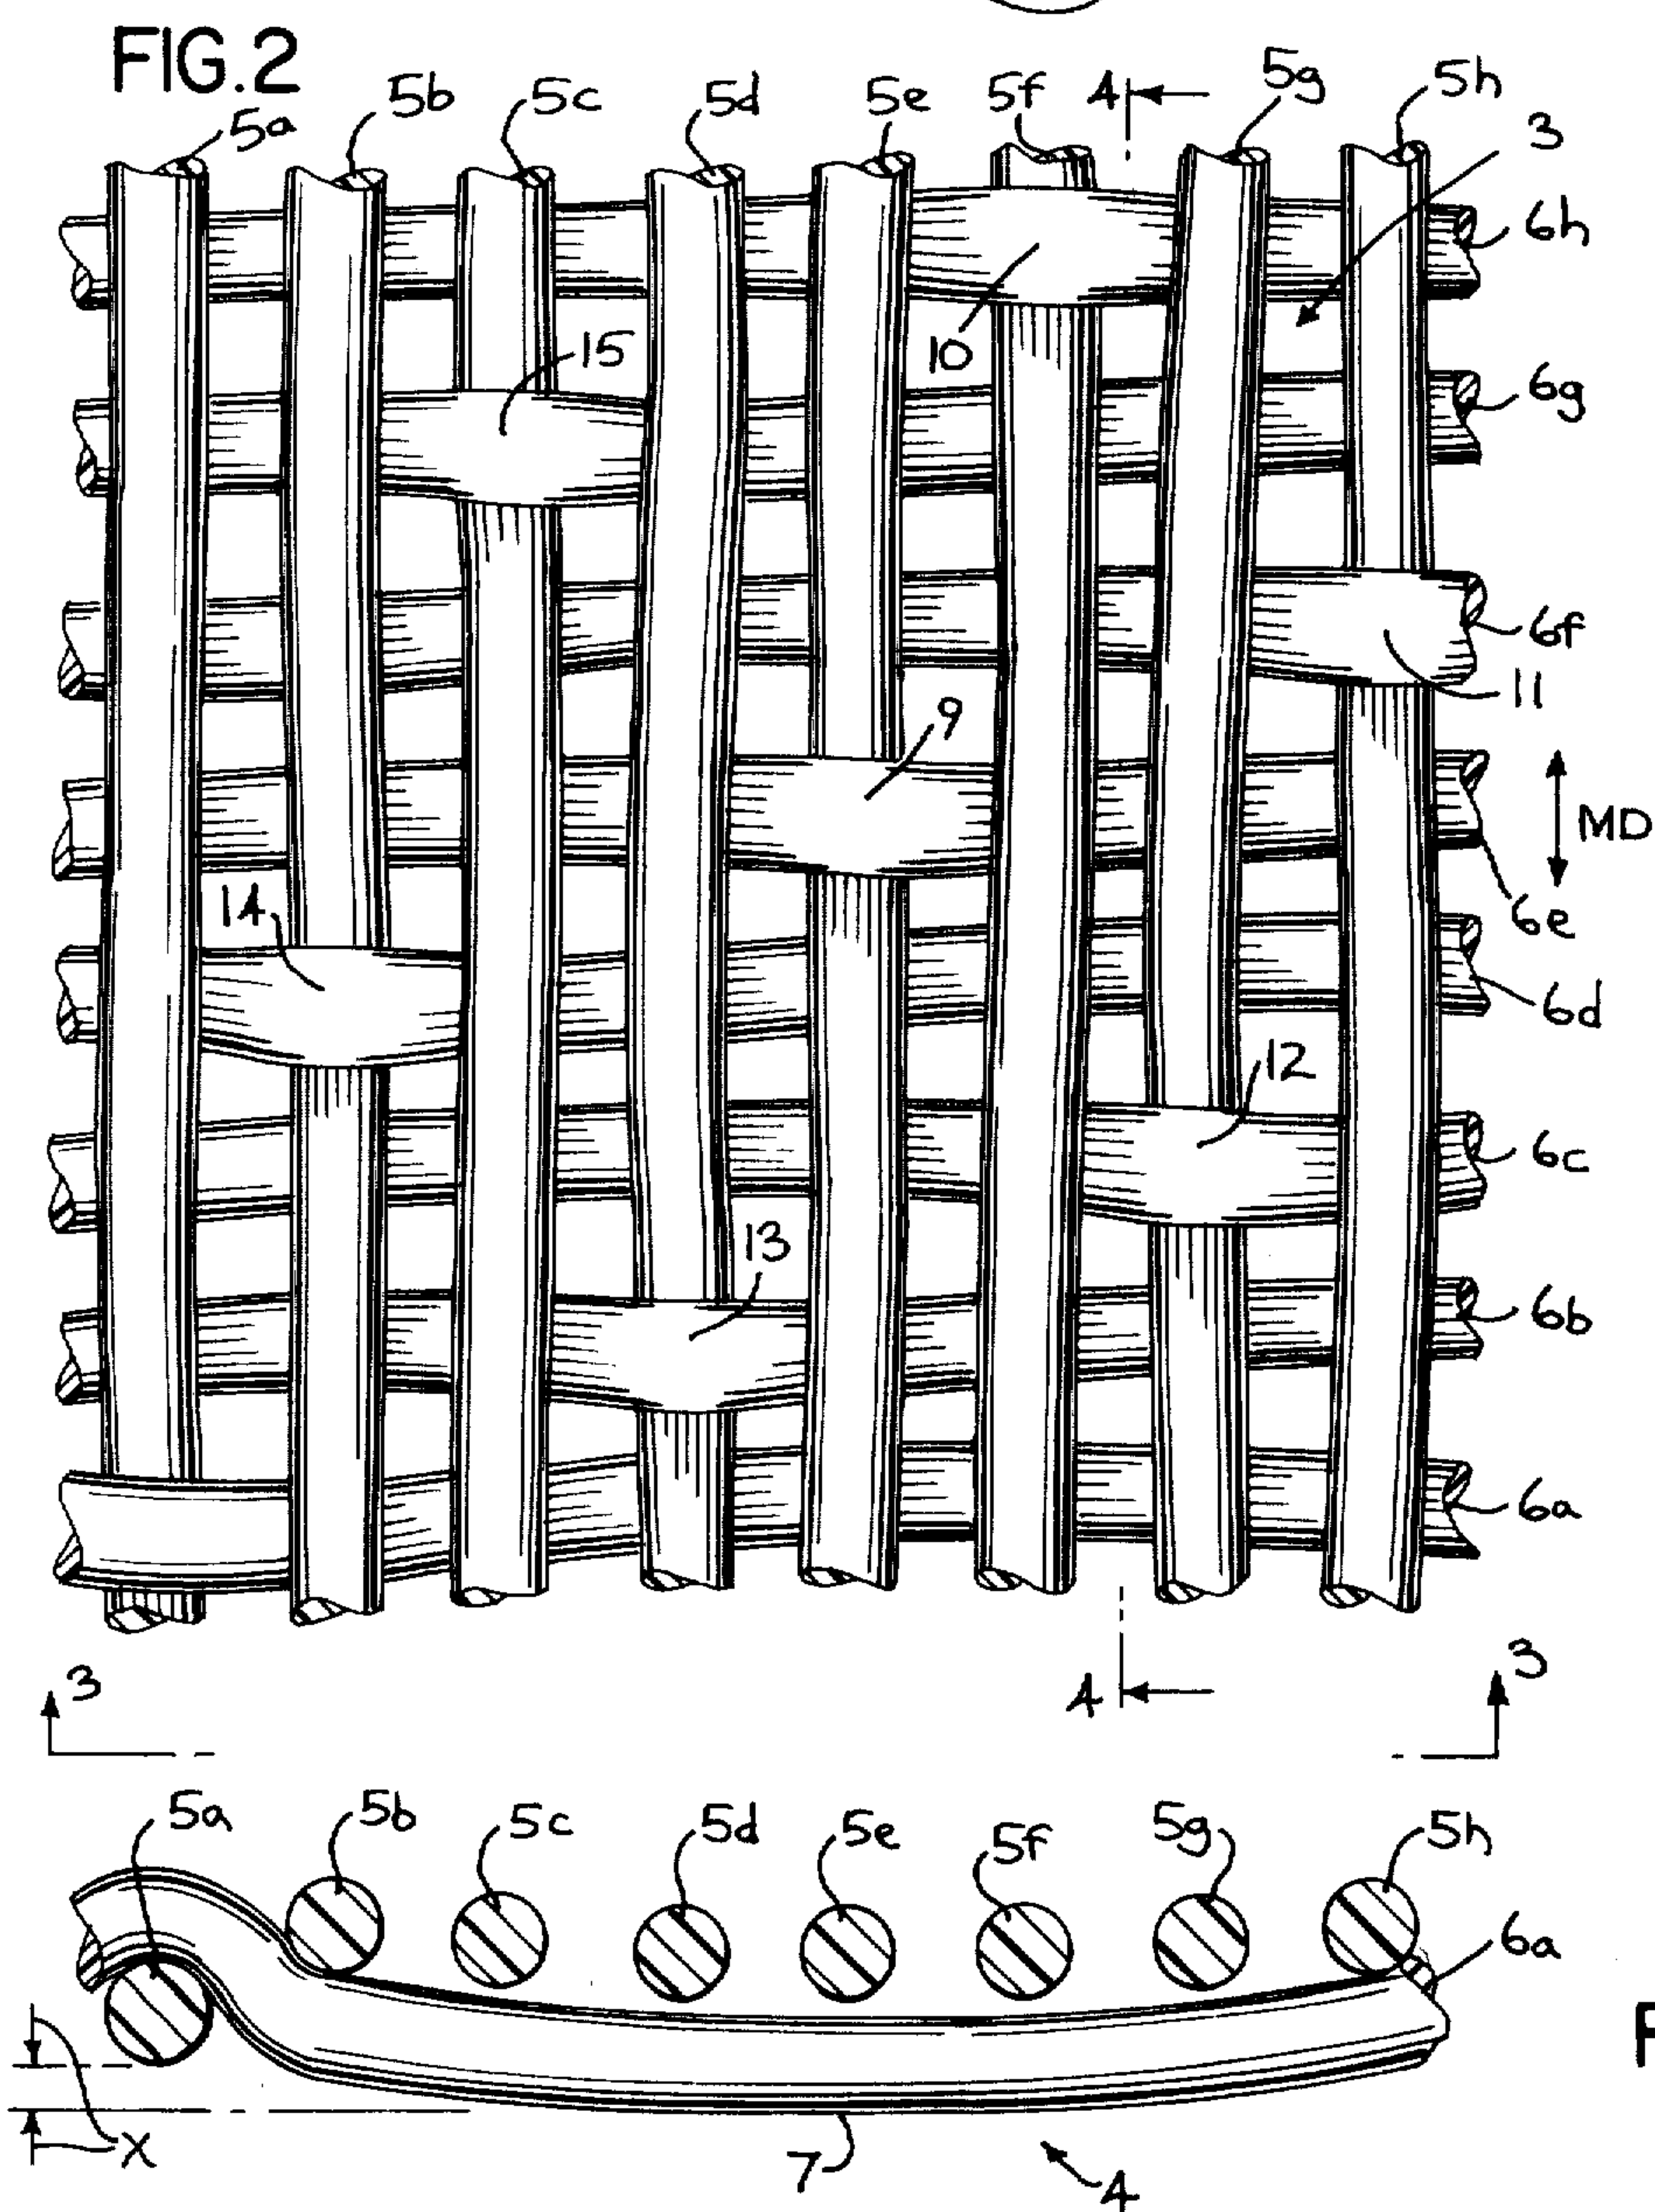 FIG.2
5a 5b 5c 5d 5e 5f 4 5g 5h
3
6h
15 10
6g
6f
11
9
MD
14
6e
6d
12
6c
13
6b
6a
3 4 3
5a 5b 5c 5d 5e 5f 5g 5h
6a
X
7
4